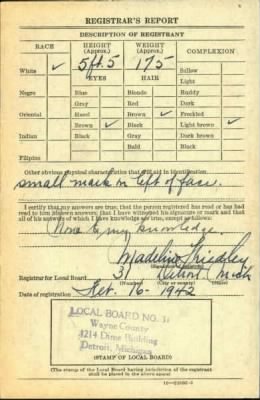 REGISTRAR'S REPORT
DESCRIPTION OF REGISTRANT
RACE HEIGHT (Approx.) WEIGHT (Approx.) COMPLEXION
White ✓ 5ft. 5 175 Sallow
EYES HAIR Light
Negro Blue Blonde Ruddy
Gray Red Dark
Oriental Hazel Brown ✓ Freckled
Brown ✓ Black Light brown ✓
Indian Black Gray Dark brown
Bald Black
Filipino
Other obvious physical characteristics that will aid in identification
small mark on left of face.
I certify that my answers are true; that the person registered has read or has had
read to him his own answers; that I have witnessed his signature or mark and that
all of his answers of which I have knowledge are true, except as follows:
None to my knowledge.
Madeline
Registrar for Local Board 31 Detroit Mich
(Number) (City or county) (State)
Date of registration Feb. 16 - 1942
LOCAL BOARD NO. 31
Wayne County
4214 Dime Building
Detroit, Michigan
(STAMP OF LOCAL BOARD)
(The stamp of the Local Board having jurisdiction of the registrant
shall be placed in the above space.)